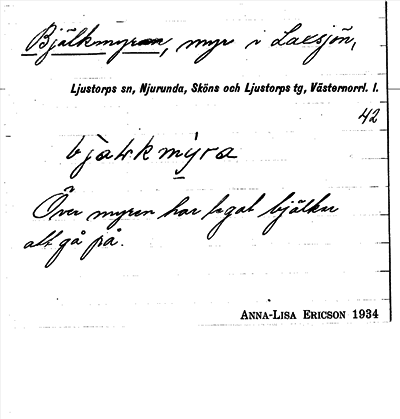 Bjälkmyran, myr i Laxsjön,
Ljustorps sn, Njurunda, Sköns och Ljustorps tg, Västernorrl. l.
42
bjàḷkmỳra
Över myren har legat bjälkar
att gå på.
ANNA-LISA ERICSON 1934